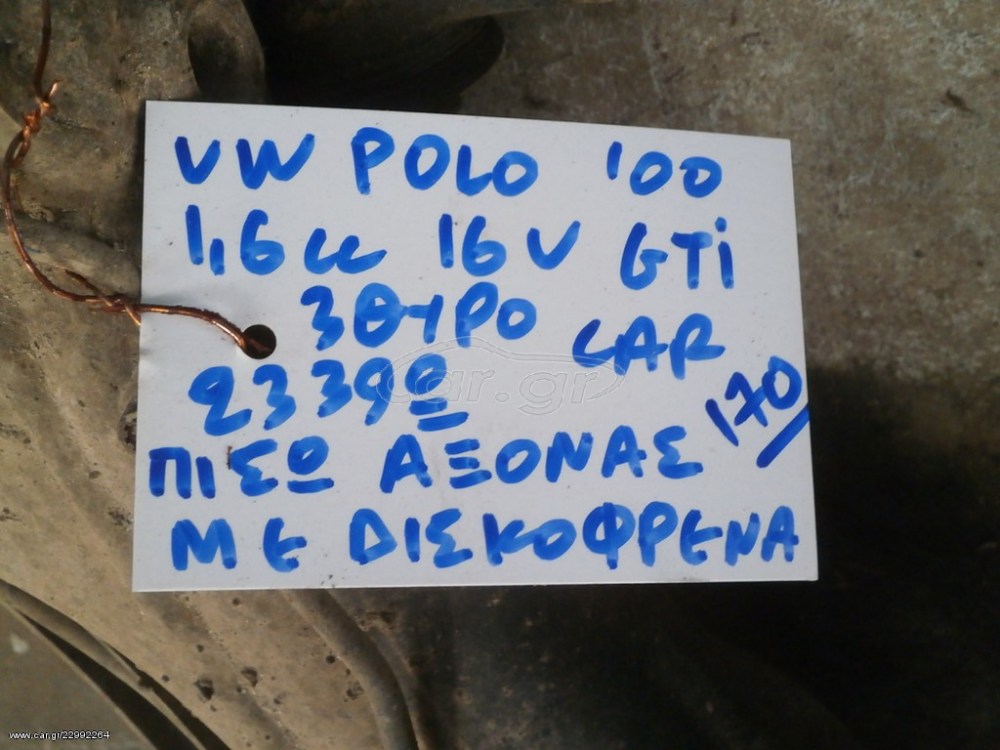 VW POLO '00
1,6 cc 16V GTi
3ΘΥΡΟ
CAR
170/
ΠΙΣΩ ΑΞΟΝΑΣ
ΜΕ ΔΙΣΚΟΦΡΕΝΑ
car.gr
www.car.gr/22992264